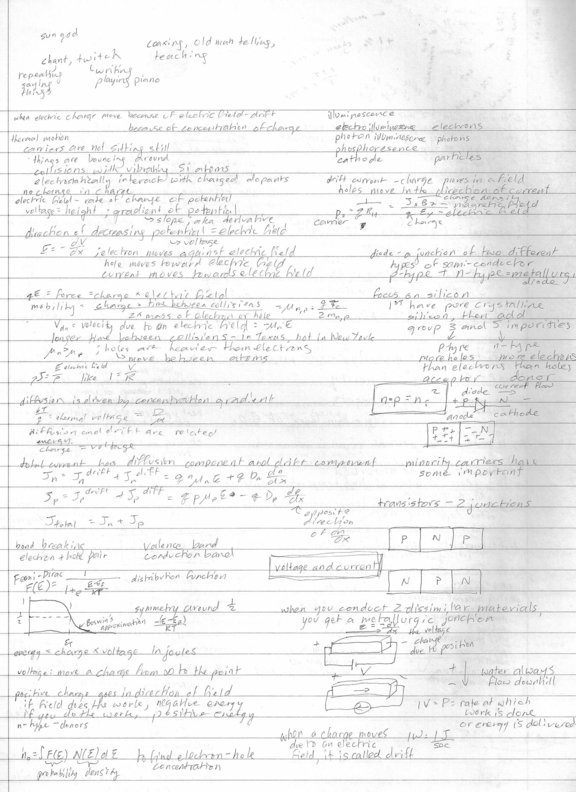 sun god
coaxing, old man telling,
teaching
chant, twitch
writing
repeating
saying
things
playing piano
when electric charge move because of electric field - drift
because of concentration of charge
thermal motion
carriers are not sitting still
things are bouncing around
collisions with vibrating Si atoms
electrostatically interact with charged dopants
no change in charge
electric field - rate of change of potential
voltage = height; gradient of potential
slope, aka derivative
direction of decreasing potential = electric field
E = - dV/dx
voltage
; electron moves against electric field
hole moves toward electric field
current moves towards electric field
qE = force = charge * electric field
mobility = charge * time between collisions / 2 * mass of electron or hole = μn,p =
= velocity due to an electric field = -μnE
longer time between collisions - in Texas, not in New York
μn > μp ; holes are heavier than electrons
move between atoms
electric field
like I = V/R
diffusion is driven by concentration gradient
kT/q = thermal voltage = D/μ
diffusion and drift are related
energy/charge = voltage
total current has diffusion component and drift component
Jn = Jn drift + Jn diff = q n μn E + q Dn dn/dx
Jp = Jp drift + Jp diff = q p μp E - q Dp dp/dx
opposite
direction
of dn/dx
J total = Jn + Jp
bond breaking
electron + hole pair
valence band
conduction band
Fermi-Dirac
F(E) =
distribution function
1
1/2
symmetry around 1/2
approximation
energy = charge * voltage in joules
voltage: move a charge from ∞ to the point
positive charge goes in direction of field
if field does the work, negative energy
if you do the work, positive energy
n-type - donors
n₀ = ∫ F(E) N(E) dE
probability density
to find electron-hole
concentration
illuminescence
electroilluminescense electrons
photon illuminescense photons
phosphoresence
cathode particles
drift current - charge moves in a field
holes move in the direction of current
charge density
magnetic field
electric field
carrier
charge
diode - a junction of two different
types of semi-conductor
p-type + n-type = metallurgic
diode
focus on silicon
1st have pure crystalline
silicon, then add
group 3 and 5 imporities
p-type
n-type
more holes
than electrons
acceptor
more electrons
than holes
donor
n·p = ni²
diode current flow
+ P N -
anode cathode
P N
minority carriers have
some important
transistors - 2 junctions
P N P
voltage and current
N P N
when you conduct 2 dissimilar materials
you get a metallurgic junction
E = -dV/dx
the voltage
change
due to position
+ -
V
water always
flow downhill
+ -
IV = P = rate at which
work is done
or energy is delivered
when a charge moves
due to an electric
field, it is called drift
1W = 1J/sec